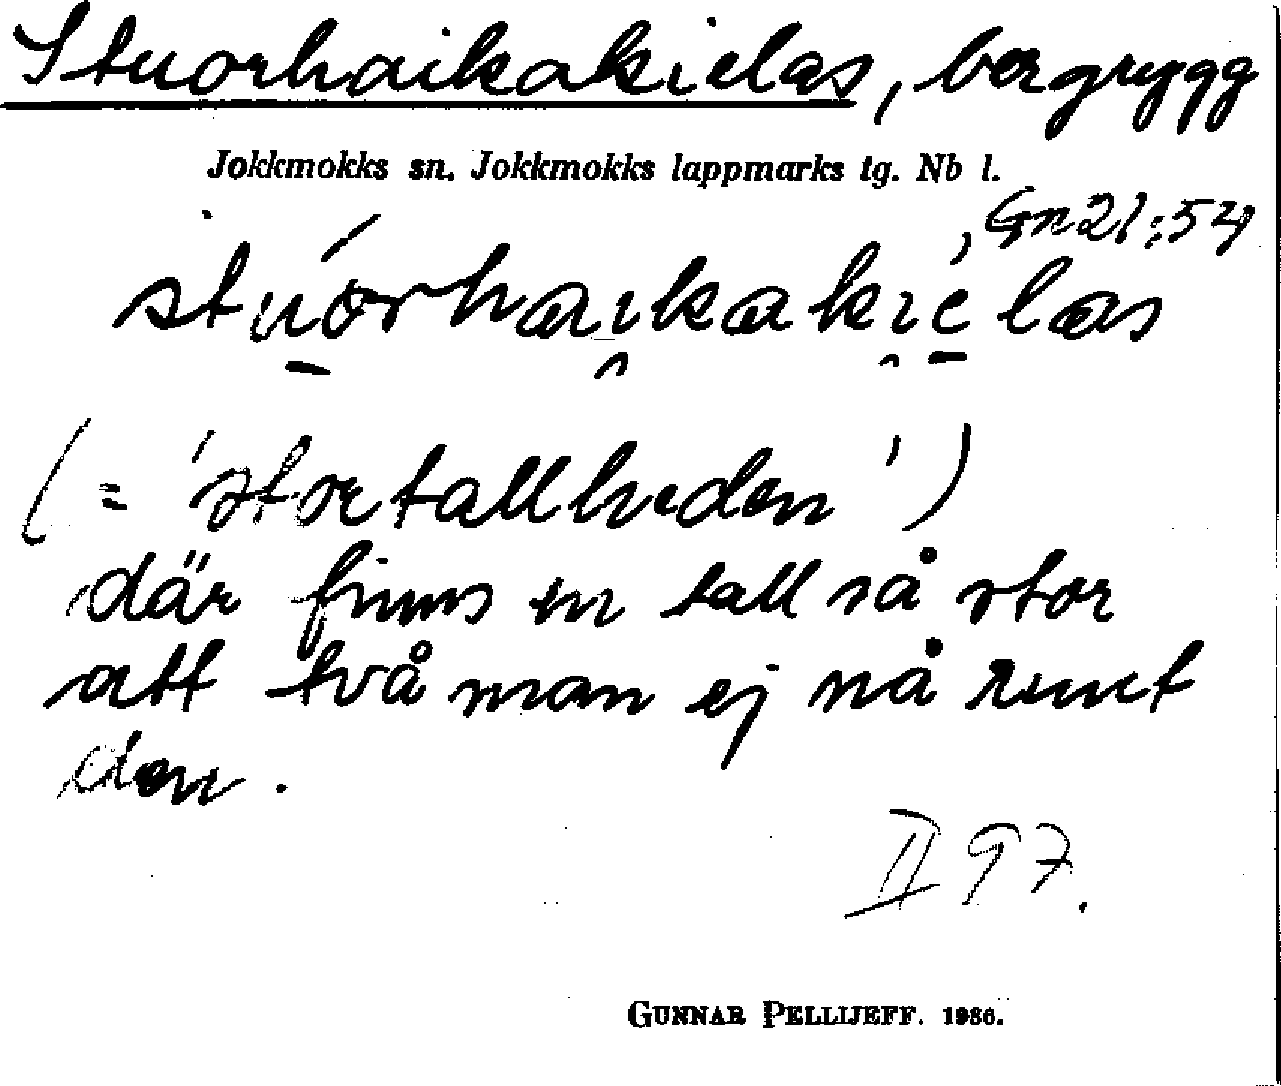 Stuorhaikakielas, bergrygg
Jokkmokks sn. Jokkmokks lappmarks tg. Nb l.
Gn 21:54
stuórhaikakiélas
(= 'stortallheden')
där finns en tall så stor
att två man ej nå runt
den.
II 97.
GUNNAR PELLIJEFF. 1936.